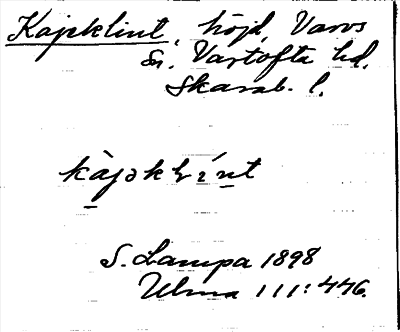 Kajeklint, höjd, Varvs
sn. Vartofta hd.
Skarab. l.
kàjəklínt
S. Lampa 1898
Ulma 111:446.